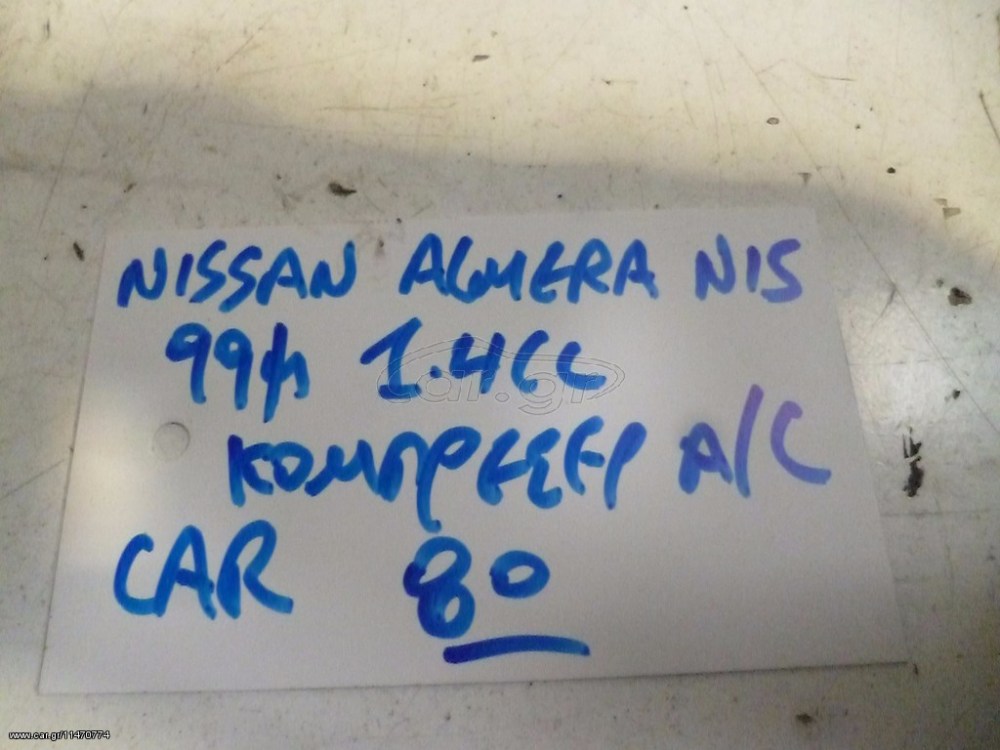 NISSAN ALMERA N15
99μ 1.4CC
ΚΟΜΠΡΕΣΕΡ A/C
CAR 80
car.gr
www.car.gr/11470774